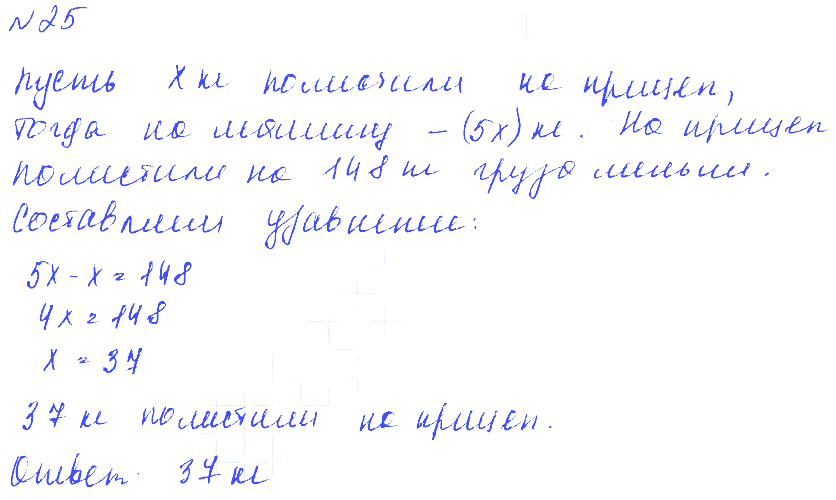 № 25
Пусть x кг поместили на прицеп,
тогда на машину – (5x) кг. На прицеп
поместили на 148 кг груза меньше.
Составляем уравнение:
5x - x = 148
4x = 148
x = 37
37 кг поместили на прицеп.
Ответ: 37 кг